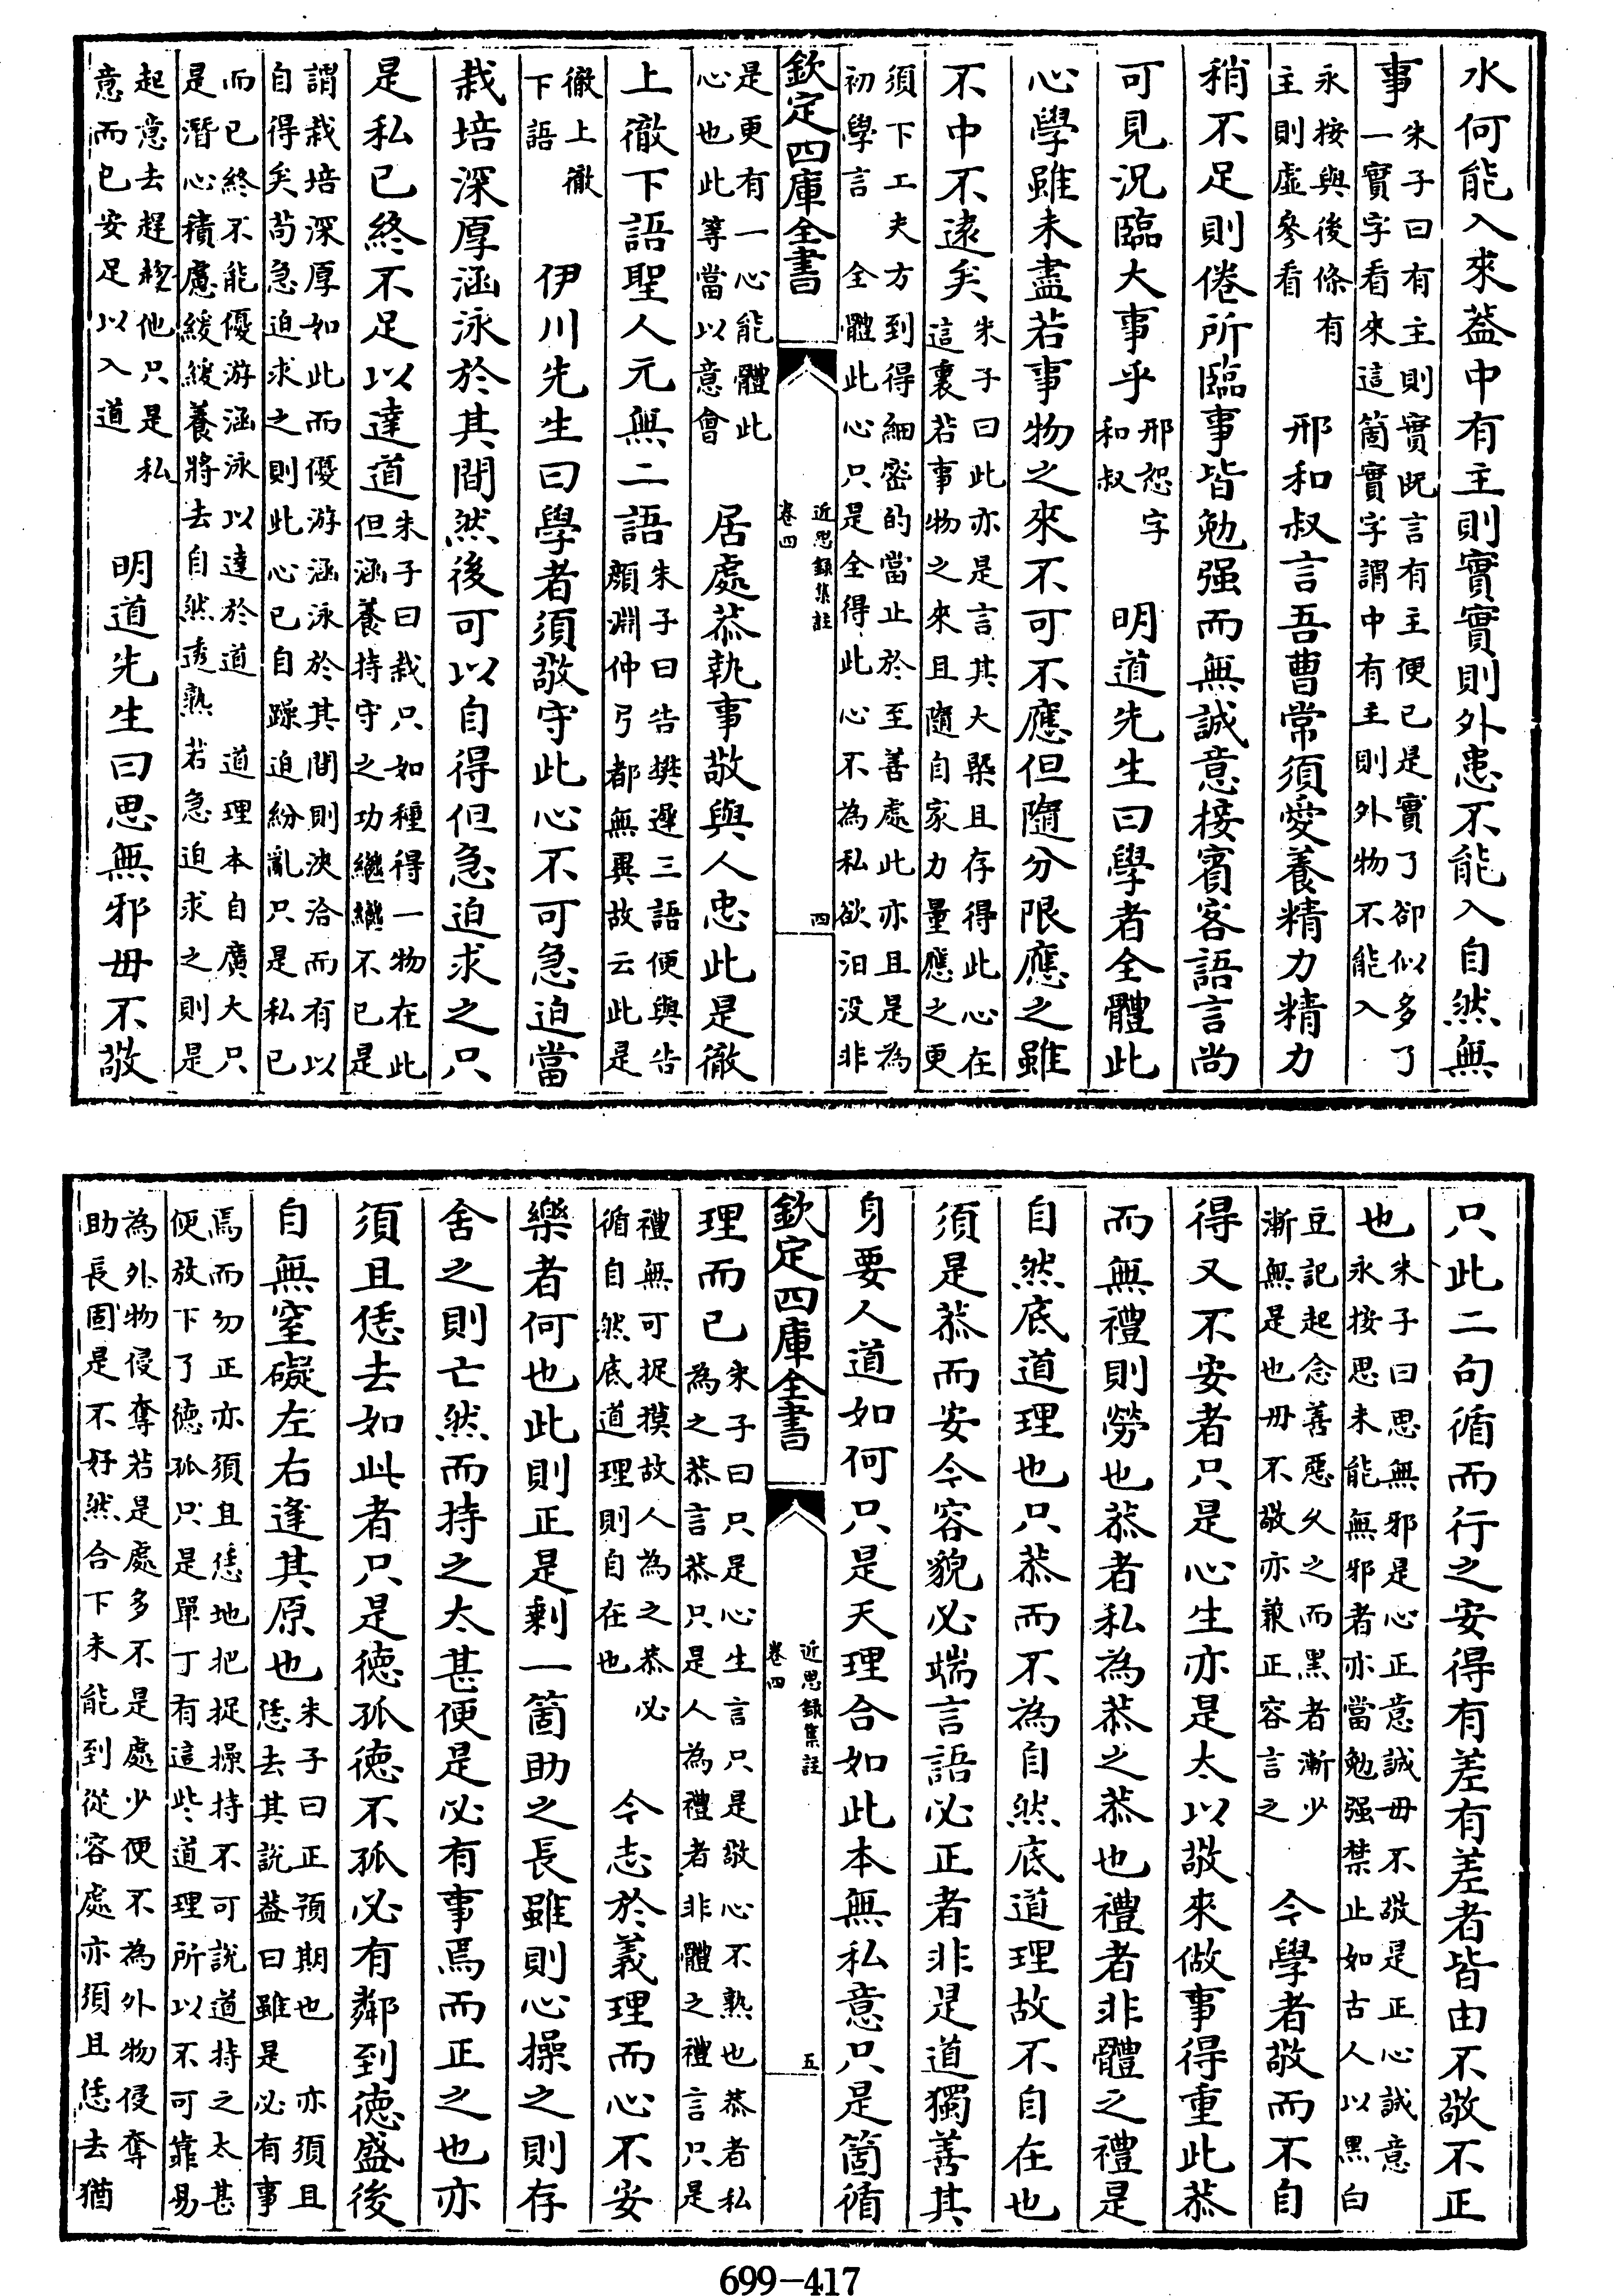 水何能入來葢中有主則實實則外患不能入自然無
事朱子曰有主則實既言有主便已是實了卻似多了
一實字看來這箇實字謂中有主則外物不能入
永按與後條有
主則虛參看
邢和叔言吾曹常須愛養精力精力
稍不足則倦所臨事皆勉强而無誠意接賓客語言尚
可見況臨大事乎邢恕字
和叔
明道先生曰學者全體此
心學雖未盡若事物之來不可不應但隨分限應之雖
不中不遠矣朱子曰此亦是言其大槩且存得此心在
這裏若事物之來且隨自家力量應之更
須下工夫方到得細密的當止於至善處此亦且是為
初學言 全體此心只是全得此心不為私欲汨没非
欽定四庫全書
近思録集註
卷四
四
是更有一心能體此
心也此等當以意會
居處恭執事敬與人忠此是徹
上徹下語聖人元無二語朱子曰告樊遲三語便與告
顏淵仲弓都無異故云此是
徹上徹
下語
伊川先生曰學者須敬守此心不可急迫當
栽培深厚涵泳於其間然後可以自得但急迫求之只
是私已終不足以達道朱子曰栽只如種得一物在此
但涵養持守之功繼繼不已是
謂栽培深厚如此而優游涵泳於其間則浹洽而有以
自得矣苟急迫求之則此心已自躁迫紛亂只是私已
而已終不能優游涵泳以達於道 道理本自廣大只
是潛心積慮緩緩養將去自然透熟若急迫求之則是
起意去趕趂他只是私
意而已安足以入道
明道先生曰思無邪毋不敬
只此二句循而行之安得有差有差者皆由不敬不正
也朱子曰思無邪是心正意誠毋不敬是正心誠意
永按思未能無邪者亦當勉强禁止如古人以黑白
豆記起念善惡久之而黑者漸少
漸無是也毋不敬亦兼正容言之
今學者敬而不自
得又不安者只是心生亦是太以敬來做事得重此恭
而無禮則勞也恭者私為恭之恭也禮者非體之禮是
自然底道理也只恭而不為自然底道理故不自在也
須是恭而安今容貌必端言語必正者非是道獨善其
身要人道如何只是天理合如此本無私意只是箇循
欽定四庫全書
近思録集註
卷四
五
理而已朱子曰只是心生言只是敬心不熟也恭者私
為之恭言恭只是人為禮者非體之禮言只是
禮無可捉摸故人為之恭必
循自然底道理則自在也
今志於義理而心不安
樂者何也此則正是剩一箇助之長雖則心操之則存
舍之則亡然而持之太甚便是必有事焉而正之也亦
須且恁去如此者只是德孤德不孤必有鄰到德盛後
自無窒礙左右逢其原也朱子曰正預期也 亦須且
恁去其説葢曰雖是必有事
焉而勿正亦須且恁地把捉操持不可説道持之太甚
便放下了德孤只是單丁有這些道理所以不可靠易
為外物侵奪若是處多不是處少便不為外物侵奪
助長固是不好然合下未能到從容處亦須且恁去猶
699-417